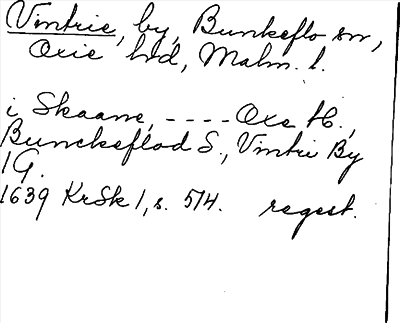 Vintrie, by, Bunkeflo sn,
Oxie hd, Malm. l.
i Skaane, ---- Oxe H.,
Bunckeflod S., Vintri By
1 G.
1639 KrSk 1, s. 514. regest.